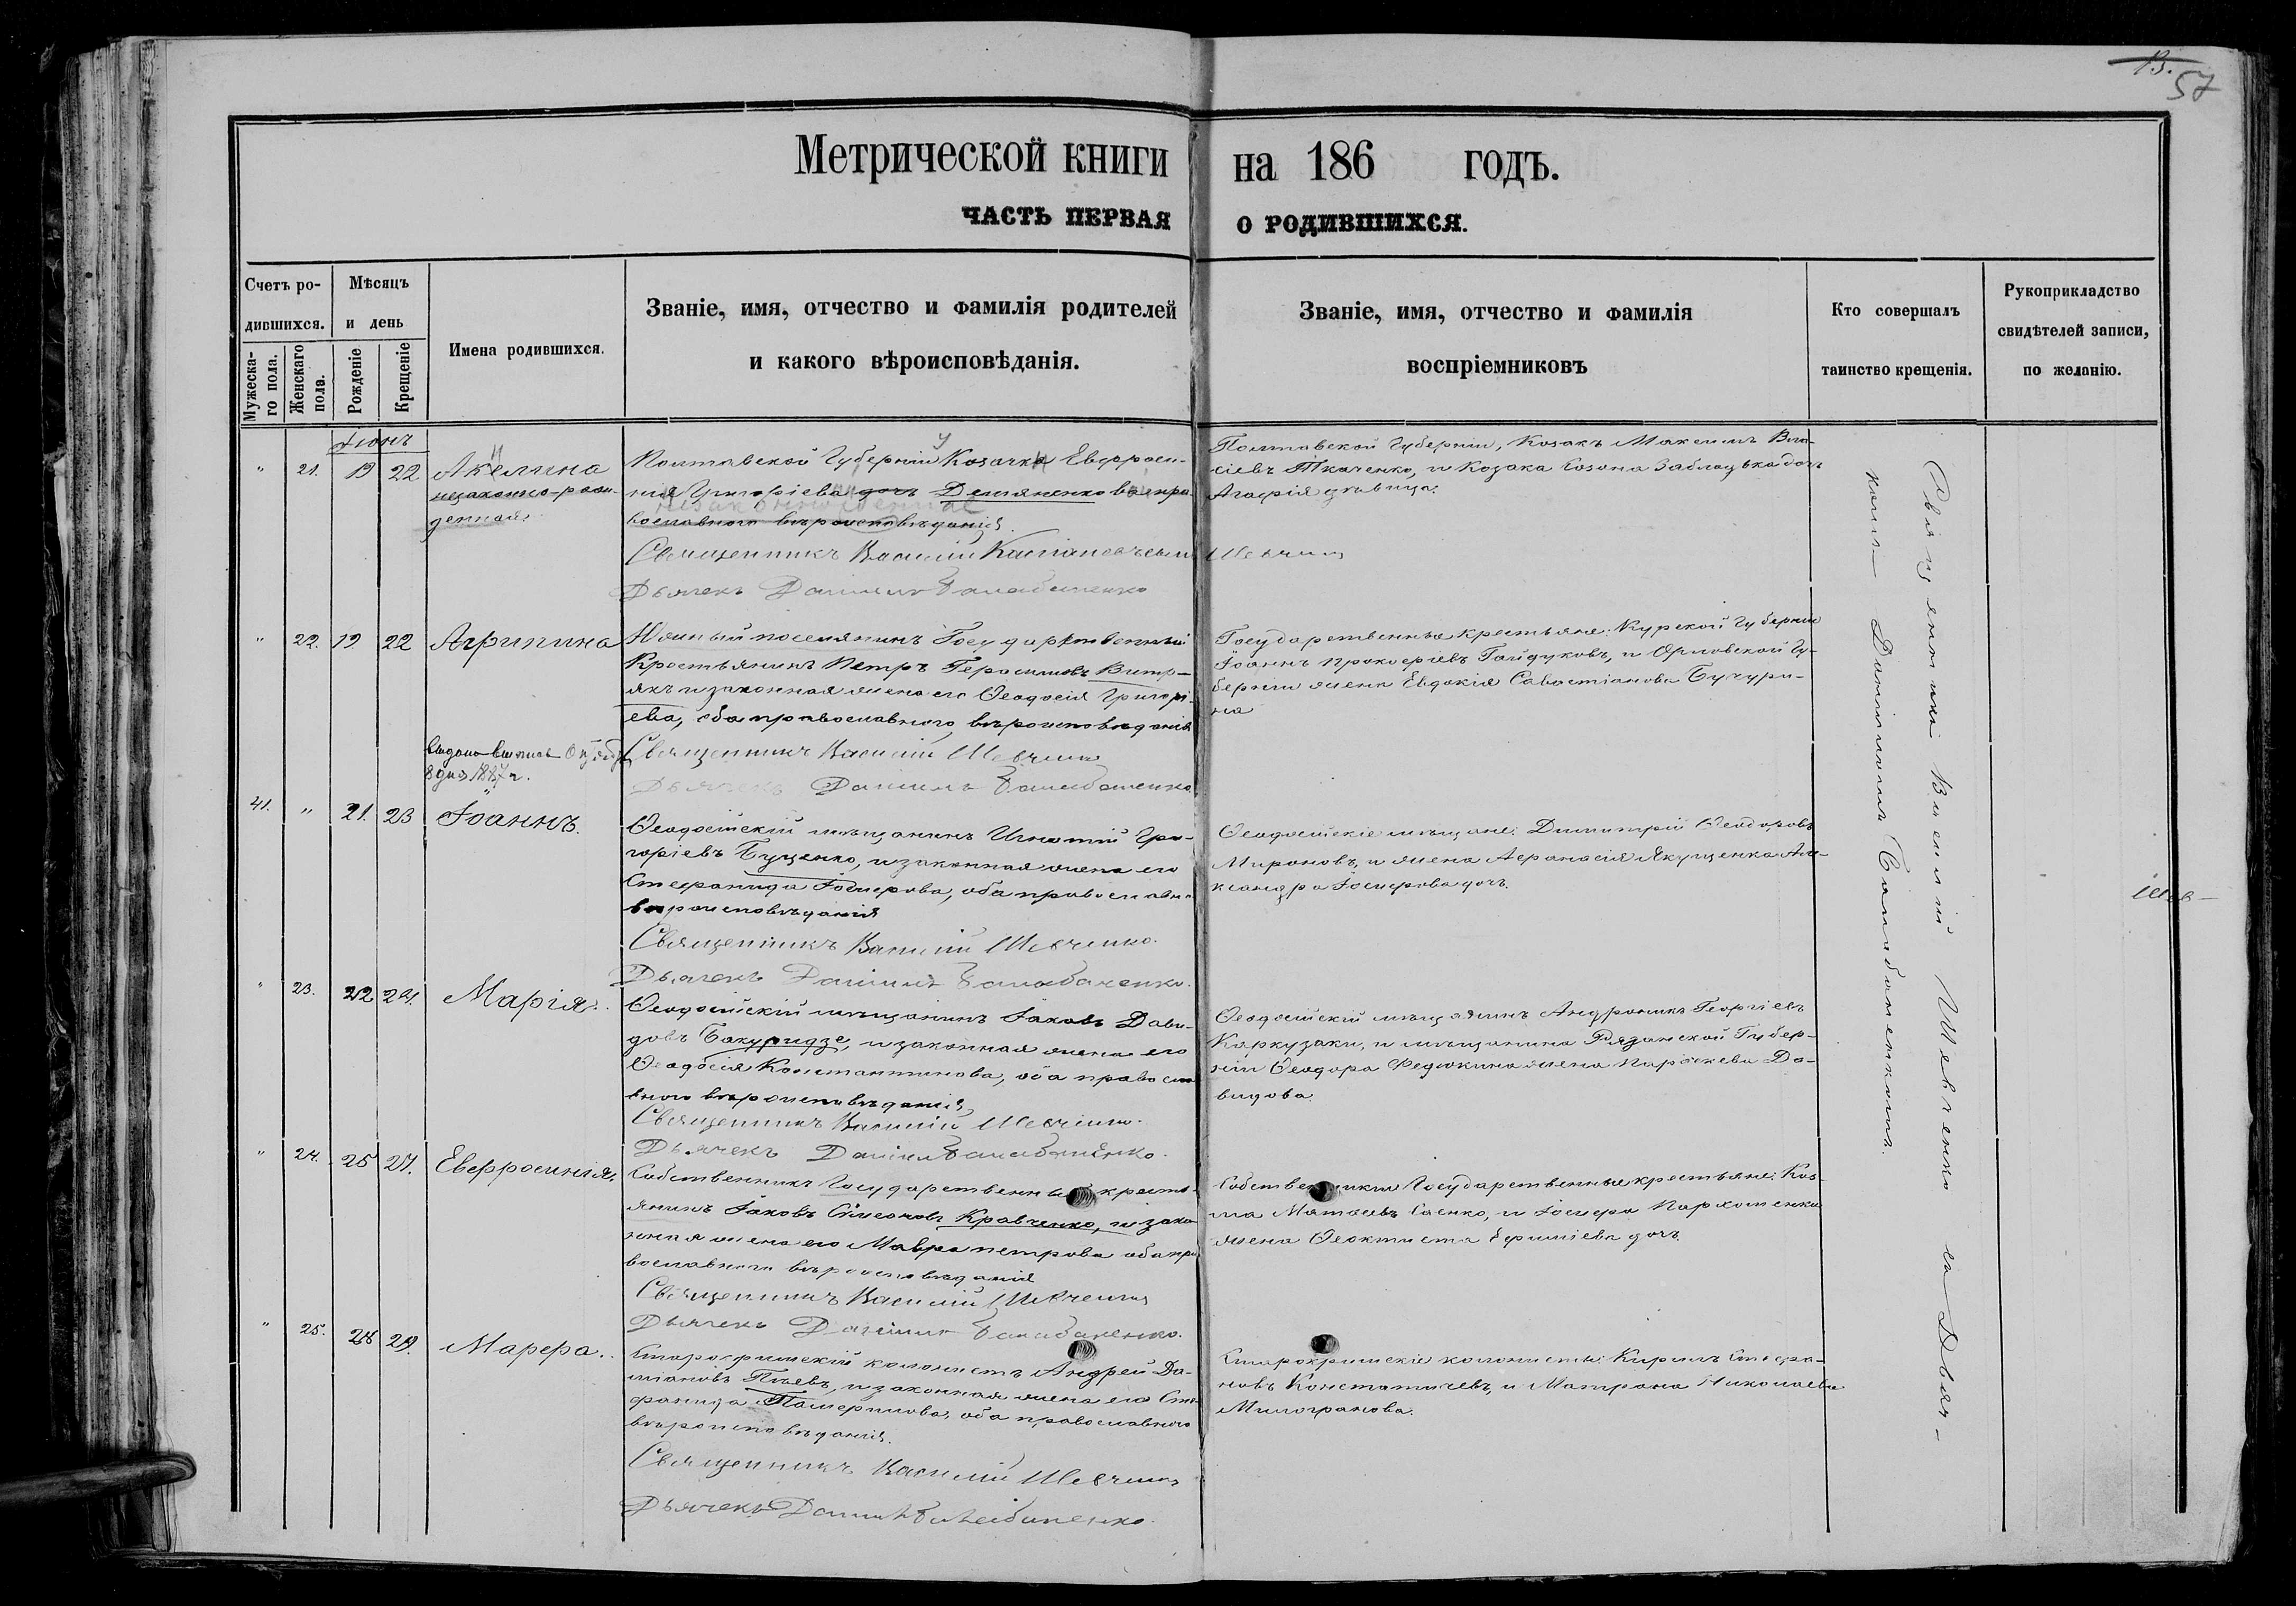 13.
57
Метрической книги на 186 годъ.
ЧАСТЬ ПЕРВАЯ О РОДИВШИХСЯ.
Счетъ ро-
дившихся.
Мужеска-
го пола.
Женскаго
пола.
Мѣсяцъ
и день
Рожденіе
Крещеніе
Имена родившихся.
Званіе, имя, отчество и фамилія родителей
и какого вѣроисповѣданія.
Званіе, имя, отчество и фамилія
воспріемниковъ
Кто совершалъ
таинство крещенія.
Рукоприкладство
свидѣтелей записи,
по желанію.
" 21. 22 Акелина
незаконно-рож-
денная
Полтавской Губерніи Козачка Евфроси-
нія Григоріева дочь Демяненко
вославнаго вѣроисповѣданія
Священникъ Василій
Дьячекъ Даніилъ Балабаненко
Полтавской Губерніи, Козакъ Максимъ Вла-
сіевъ Ткаченко, и Козака дочь
Агафія дѣвица.
" 22. 19 22 Агрипина
поселянинъ Государственный
Крестьянинъ Петръ Герасимовъ Витр-
якъ и законная жена его Ѳеодосія Григорі-
ева, оба православнаго вѣроисповѣданія
Священникъ Василій Шевченко
Дьячекъ Даніилъ Балабаненко
Государственные крестьяне: Курской Губерніи
Іоаннъ Прокофіевъ Гайдуковъ, и Орловской Гу-
берніи жена Евдокія Савастіанова Бучури-
на
8 дня 1887 г.
41. " 21. 23 Іоаннъ.
Ѳеодосійскій мѣщанинъ Игнатій Гри-
горіевъ Буценко, и законная жена его
Стефанида Іосифова, оба православн.
вѣроисповѣданія
Священникъ Василій Шевченко.
Дьячекъ Даніилъ Балабаненко.
Ѳеодосійскіе мѣщане: Димитрій Ѳеодоровъ
Мироновъ, и жена Афанасія Якущенка Але-
ксандра Іосифова дочь.
" 23. 22 24. Марія.
Ѳеодосійскій мѣщанинъ Іаковъ Дави-
довъ Бакуридзе, и законная жена его
Ѳеодосія Константинова, оба правосла-
внаго вѣроисповѣданія
Священникъ Василій Шевченко.
Дьячекъ Даніилъ Балабаненко.
Ѳеодосійскій мѣщанинъ Андроникъ Георгіевъ
Каркузаки, и мѣщанина Рязанской Губер-
ніи Ѳеодора Федюкина жена Параскева Да-
видова.
" 24. 25 27. Евфросинія.
Собственникъ Государственный кресть-
янинъ Іаковъ Симеоновъ Кравченко, и зако-
нная жена его Мавра Петрова оба пра-
вославнаго вѣроисповѣданія
Священникъ Василій Шевченко
Дьячекъ Даніилъ Балабаненко.
Собственники Государственные крестьяне: Коз-
ма Матѳеевъ Саенко, и Іосифа Пархоменка
жена Ѳеоктиста дочь.
" 25. 28 29. Марфа.
Старокрымскій колонистъ Андрей Да-
міановъ и законная жена его Сте-
фанида оба православнаго
вѣроисповѣданія.
Священникъ Василій Шевченко
Дьячекъ Даніилъ Балабаненко.
Старокрымскіе колонисты: Кирилъ Стефа-
новъ и Матрона Николаева
Милогранова.
Священникъ Василій Шевченко съ Дьяч-
комъ Даніиломъ Балабаненкомъ.